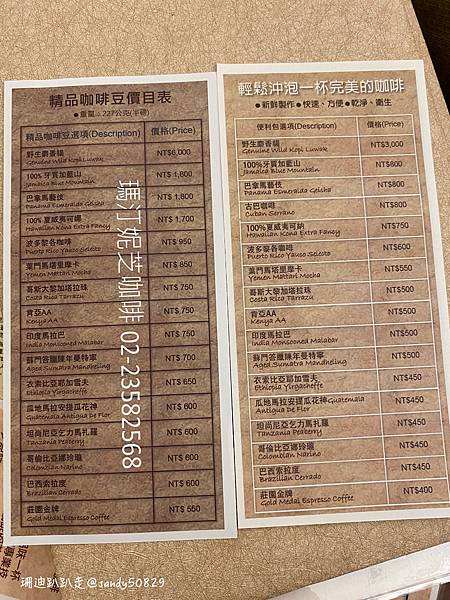 精品咖啡豆價目表
●重量：227公克(半磅)
精品咖啡豆選項(Description) 價格(Price)
野生麝香貓 NT$6,000
Genuine Wild Kopi Luwak
100%牙買加藍山 NT$ 1,800
Jamaica Blue Mountain
巴拿馬藝伎 NT$ 1,800
Panama Esmeralda Geisha
100%夏威夷可娜 NT$ 1,700
Hawaiian Kona Extra Fancy
波多黎各咖啡 NT$ 950
Puerto Rico Yauco Selecto
葉門馬塔里摩卡 NT$ 850
Yemen Mattari Mocho
哥斯大黎加塔拉珠 NT$ 750
Costa Rica Tarrazu
肯亞AA NT$ 750
Kenya AA
印度馬拉巴 NT$ 750
India Monsooned Malabar
蘇門答臘陳年曼特寧 NT$ 700
Aged Sumatra Mandheling
衣索比亞耶加雪夫 NT$ 650
Ethiopia Yirgacheffe
瓜地馬拉安提瓜花神 NT$ 600
Antigua De Flor
坦尚尼亞乞力馬扎羅 NT$ 600
Tanzania Peaberry
哥倫比亞娜玲瓏 NT$ 600
Colombian Narino
巴西索拉度 NT$ 600
Brazilian Cerrado
莊園金牌 NT$ 550
Gold Medal Espresso Coffee
瑪汀妮芝咖啡 02-23582568
輕鬆沖泡一杯完美的咖啡
●新鮮製作●快速、方便●乾淨、衛生
便利包選項(Description) 價格(Price)
野生麝香貓 NT$3,000
Genuine Wild Kopi Luwak
100%牙買加藍山 NT$800
Jamaica Blue Mountain
巴拿馬藝伎 NT$800
Panama Esmeralda Geisha
古巴咖啡 NT$800
Cuban Serrano
100%夏威夷可納 NT$750
Hawaiian Kona Extra Fancy
波多黎各咖啡 NT$600
Puerto Rico Yauco Selecto
葉門馬塔里摩卡 NT$550
Yemen Mattari Mocho
哥斯大黎加塔拉珠 NT$500
Costa Rica Tarrazu
肯亞AA NT$500
Kenya AA
印度馬拉巴 NT$500
India Monsooned Malabar
蘇門答臘陳年曼特寧 NT$500
Aged Sumatra Mandheling
衣索比亞耶加雪夫 NT$450
Ethiopia Yirgacheffe
瓜地馬拉安提瓜花神Guatemala NT$450
Antigua De Flor
坦尚尼亞乞力馬扎羅 NT$450
Tanzania Peaberry
哥倫比亞娜玲瓏 NT$450
Colombian Narino
巴西索拉度 NT$450
Brazilian Cerrado
莊園金牌 NT$400
Gold Medal Espresso Coffee
珊迪趴趴走@sandy50829